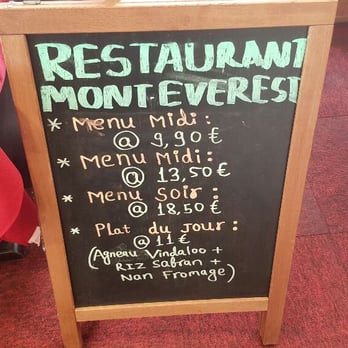 RESTAURANT
MONT EVEREST
* Menu Midi:
@ 9,90€
* Menu Midi:
@ 13,50€
* Menu Soir:
@ 18,50€
* Plat du jour:
@ 11€
(Agneau Vindaloo +
RIZ Safran +
Nan Fromage)